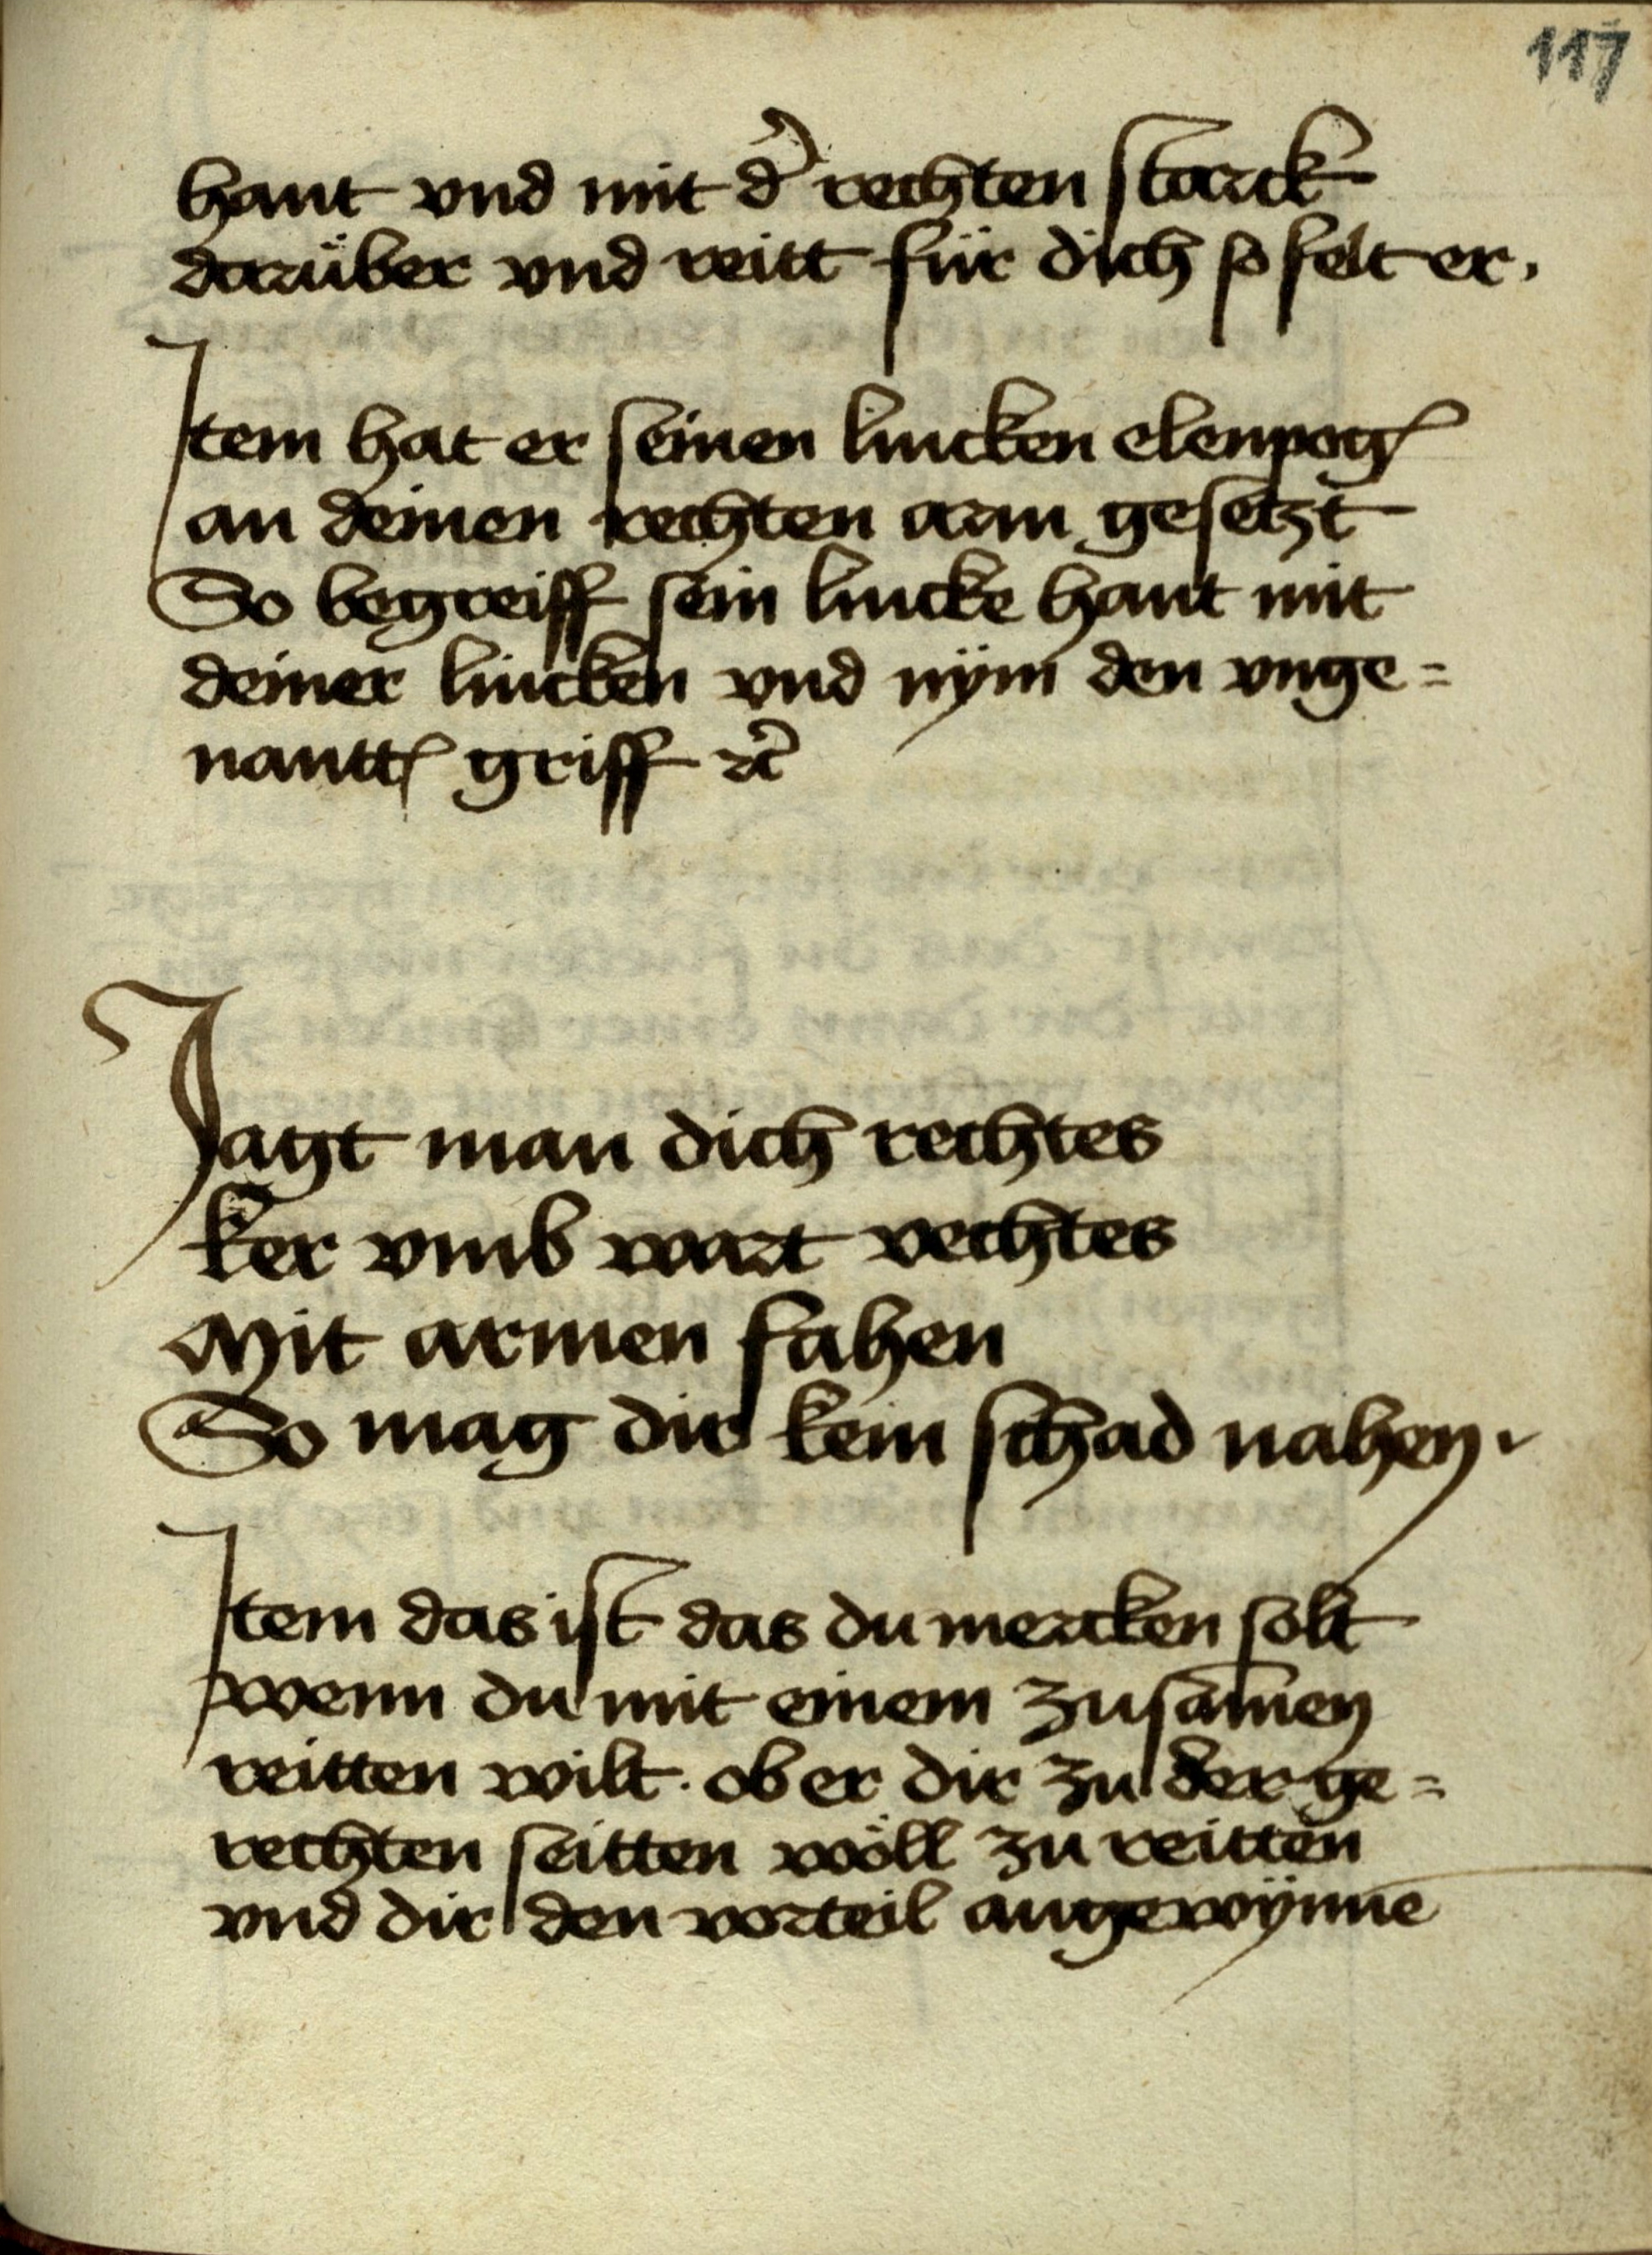 117
hant vnd mit d' rechten starck
darüber vnd reitt für dich so felt er.
Item hat er seinen lincken elenpogen
an deinen rechten arm gesetzt
So begreiff sein lincke hant mit
deiner lincken vnd nÿm den vnge=
nantten griff zc
Jagt man dich rechtes
ker vmb wart vechtes
Mit armen fahen
So mag dir kein schad nahen.
Item das ist das du mercken solt
wenn du mit einem zusam̄en
reitten wilt. ob er dir zu der ge=
rechten seitten wöll zu reitten
vnd dir den vorteil angewÿnne